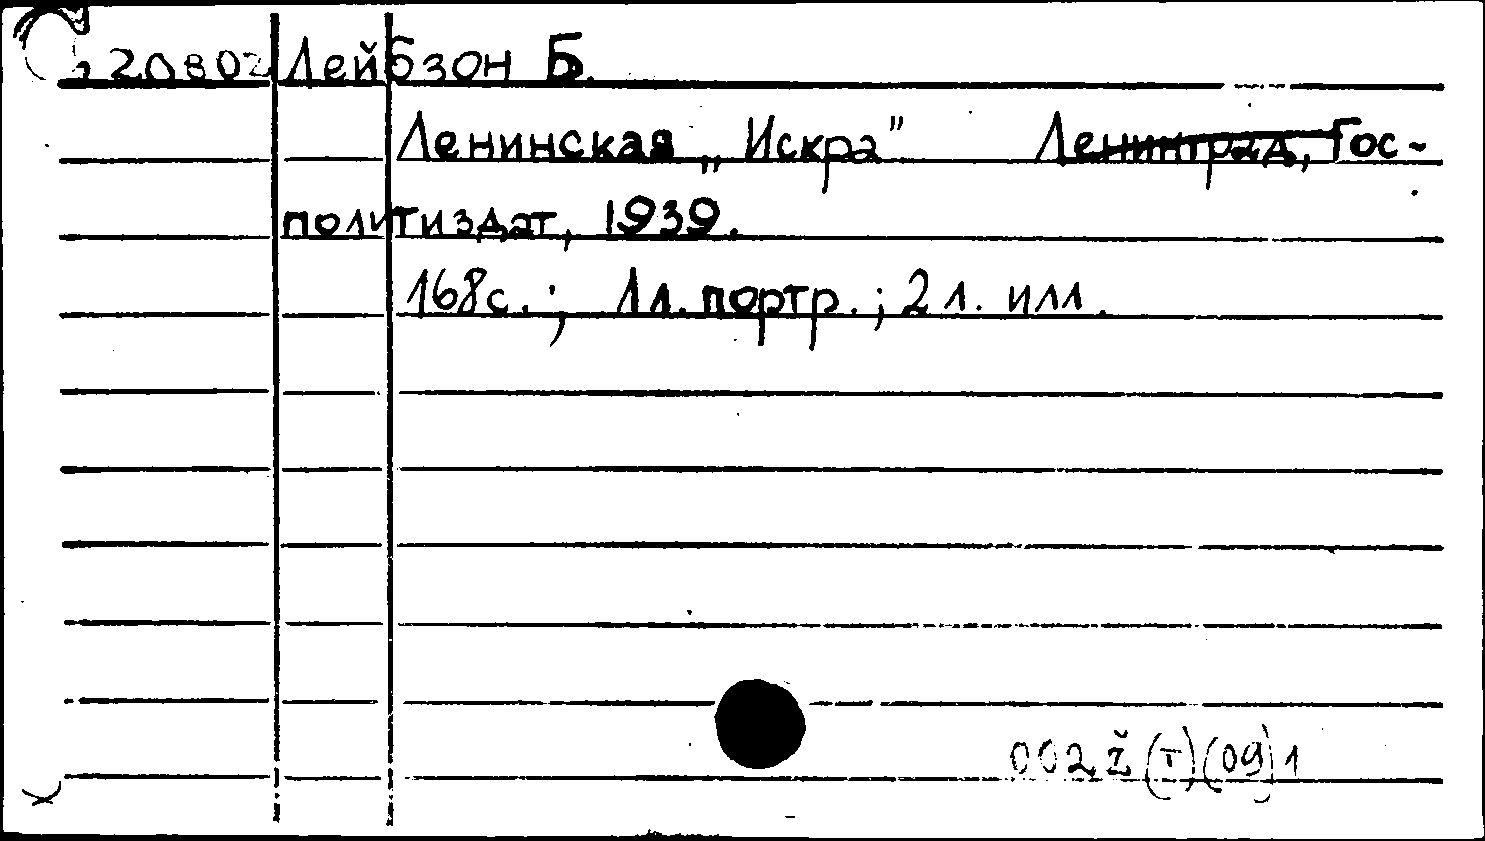 20802 Лейбзон Б.
Ленинская „Искра" Ленинград, Гос-
политиздат, 1939.
168с.; 1л. портр.; 2 л. илл.
002 ž (I) (09) 1